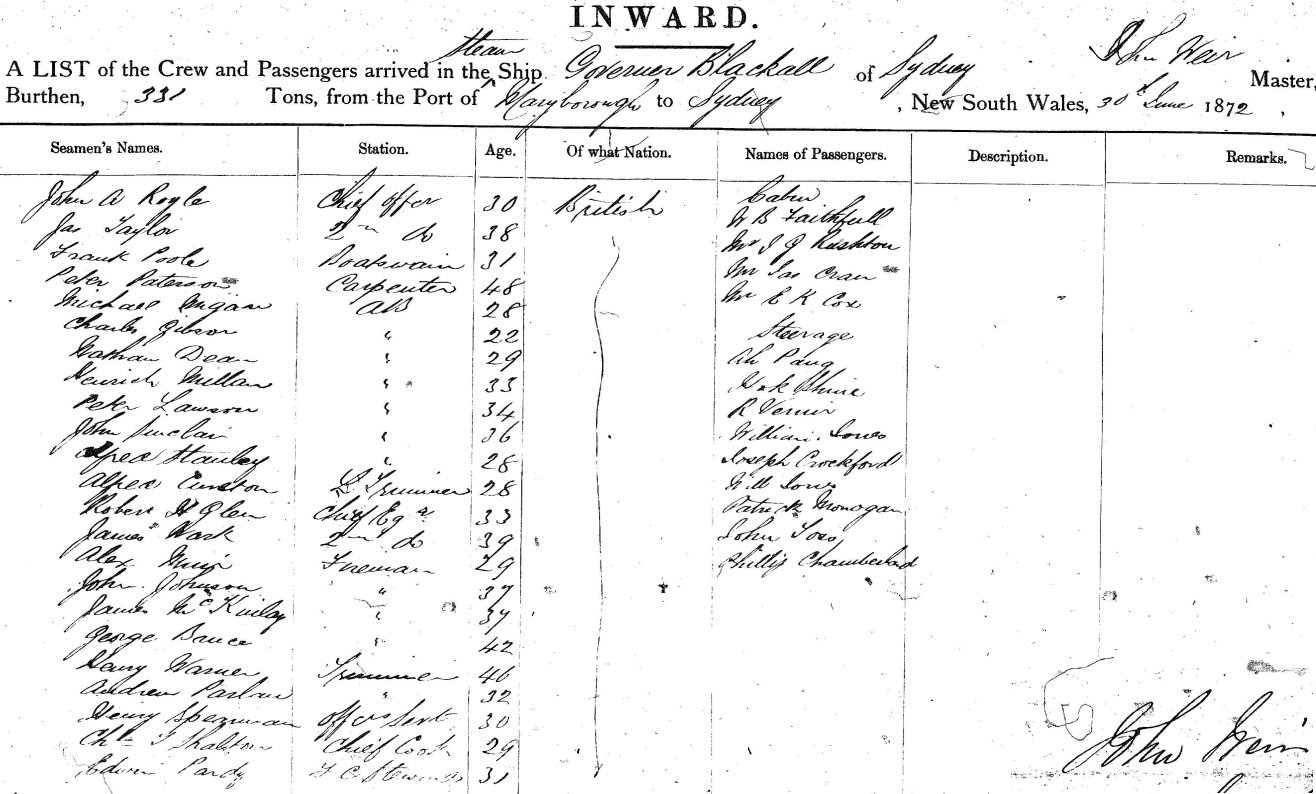 INWARD.
steam
A LIST of the Crew and Passengers arrived in the Ship Governer Blackall of Sydney John Weir Master,
Burthen, 331 Tons, from the Port of Maryborough to Sydney, New South Wales, 30th June 1872,
Seamen's Names. Station. Age. Of what Nation. Names of Passengers. Description. Remarks.
John A Royle Chief offer 30 British Cabin
Jas Taylor 2nd do 38 W B Faithfull
Frank Poole Boatswain 31 Mr J G Rushton
Peter Paterson Carpenter 48 Mr Jas Cran
Michael AB 28 Mr E K Cox
Charles Gibson " 22 Steerage
Nathan Dean " 29 Ah Pang
Heinrich Millan " 33 Hok
Peter Lawson " 34 R
John Sinclair " 36 William Jones
Alfred Stanley " 28 Joseph Crockford
Alfred Trimmer 28 Will Jones
Robert H Glen Chief Egr 33 Patrick Monogan
James Wark 2nd do 39 John
Alex Muir Fireman 29 Phillip Chamberland
John Johnson " 37
James McKinlay " 37
George Bruce " 42
Henry Warner Trimmer 46
Andrew " 32
Henry Spearman offrs Servt 30
Chas J Chief Cook 29
Edwin Pardy 31
John Weir